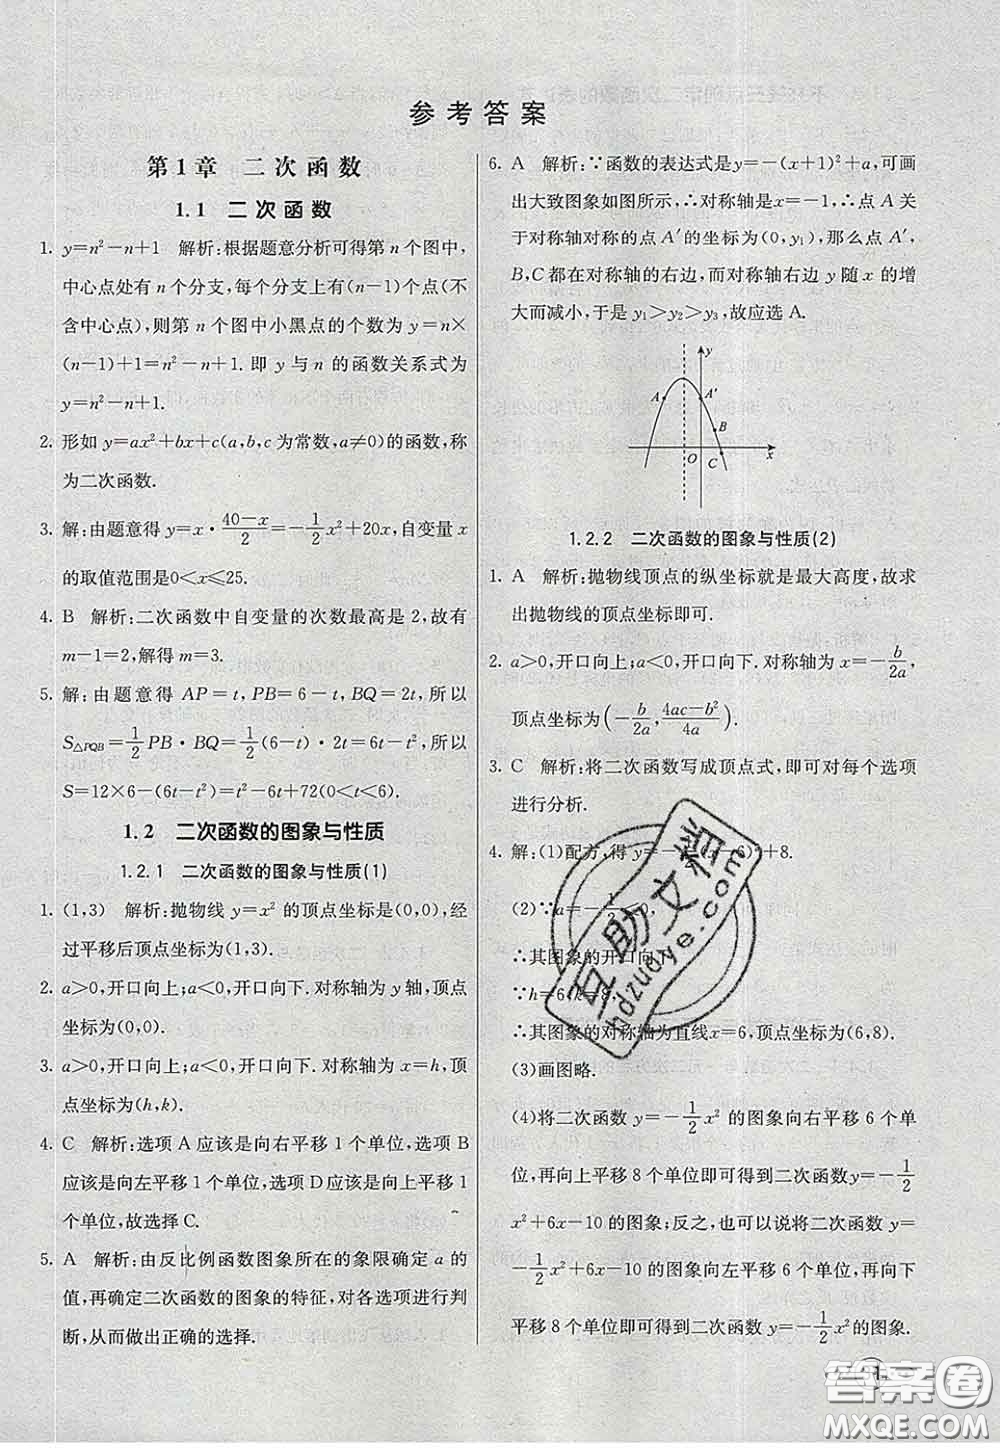 参考答案
第1章 二次函数
1.1 二次函数
1. y=n²-n+1 解析:根据题意分析可得第n个图中,
中心点处有n个分支,每个分支上有(n-1)个点(不
含中心点),则第n个图中小黑点的个数为y=n×
(n-1)+1=n²-n+1.即y与n的函数关系式为
y=n²-n+1.
2. 形如y=ax²+bx+c(a,b,c为常数,a≠0)的函数,称
为二次函数.
3. 解:由题意得y=x·(40-x)/2=-1/2x²+20x,自变量x
的取值范围是0<x≤25.
4. B 解析:二次函数中自变量的次数最高是2,故有
m-1=2,解得m=3.
5. 解:由题意得AP=t,PB=6-t,BQ=2t,所以
S△PQB=1/2PB·BQ=1/2(6-t)·2t=6t-t²,所以
S=12×6-(6t-t²)=t²-6t+72(0<t<6).
1.2 二次函数的图象与性质
1.2.1 二次函数的图象与性质(1)
1. (1,3) 解析:抛物线y=x²的顶点坐标是(0,0),经
过平移后顶点坐标为(1,3).
2. a>0,开口向上;a<0,开口向下.对称轴为y轴,顶点
坐标为(0,0).
3. a>0,开口向上;a<0,开口向下.对称轴为x=h,顶
点坐标为(h,k).
4. C 解析:选项A应该是向右平移1个单位,选项B
应该是向左平移1个单位,选项D应该是向上平移1
个单位,故选择C.
5. A 解析:由反比例函数图象所在的象限确定a的
值,再确定二次函数的图象的特征,对各选项进行判
断,从而做出正确的选择.
6. A 解析:∵函数的表达式是y=-(x+1)²+a,可画
出大致图象如图所示,∴对称轴是x=-1,∴点A关
于对称轴对称的点A′的坐标为(0,y₁),那么点A′,
B,C都在对称轴的右边,而对称轴右边y随x的增
大而减小,于是y₁>y₂>y₃,故应选A.
y
A A′
B
O C x
1.2.2 二次函数的图象与性质(2)
1. A 解析:抛物线顶点的纵坐标就是最大高度,故求
出抛物线的顶点坐标即可.
2. a>0,开口向上;a<0,开口向下.对称轴为x=-b/2a,
顶点坐标为(-b/2a,(4ac-b²)/4a).
3. C 解析:将二次函数写成顶点式,即可对每个选项
进行分析.
4. 解:(1)配方,得y=-1/2(x-6)²+8.
(2)∵a=-1/2<0,
∴其图象的开口向下.
∵h=6,k=8,
∴其图象的对称轴为直线x=6,顶点坐标为(6,8).
(3)画图略.
(4)将二次函数y=-1/2x²的图象向右平移6个单
位,再向上平移8个单位即可得到二次函数y=-1/2
x²+6x-10的图象;反之,也可以说将二次函数y=
-1/2x²+6x-10的图象向左平移6个单位,再向下
平移8个单位即可得到二次函数y=-1/2x²的图象.
互助文档
hdzuoye.com
答案圈
MXQE.COM